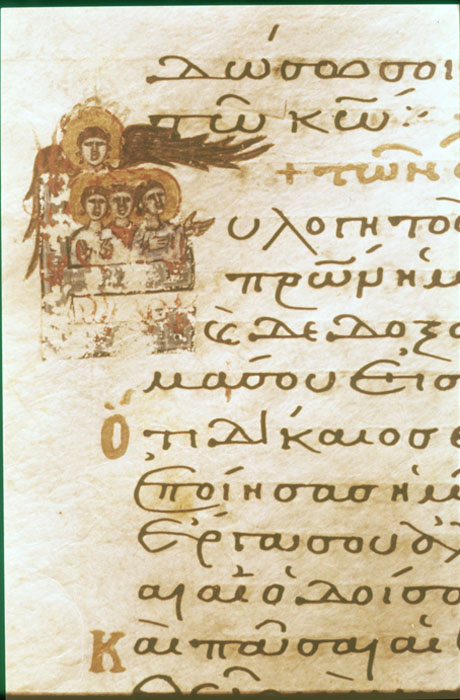 δώσωσοι
τῶ κῶ:
+ τῶν
υλογητὸσ
πρῶν ἡμ
ὡ δεδοξα
μάσου εἰσ
Ὅτι δίκαιοσ ε
ἐποίησασ ἡμ
ἔργασου ἀλ
αιαἱ ὁδοίσο
Καὶ πᾶσαι αἱ